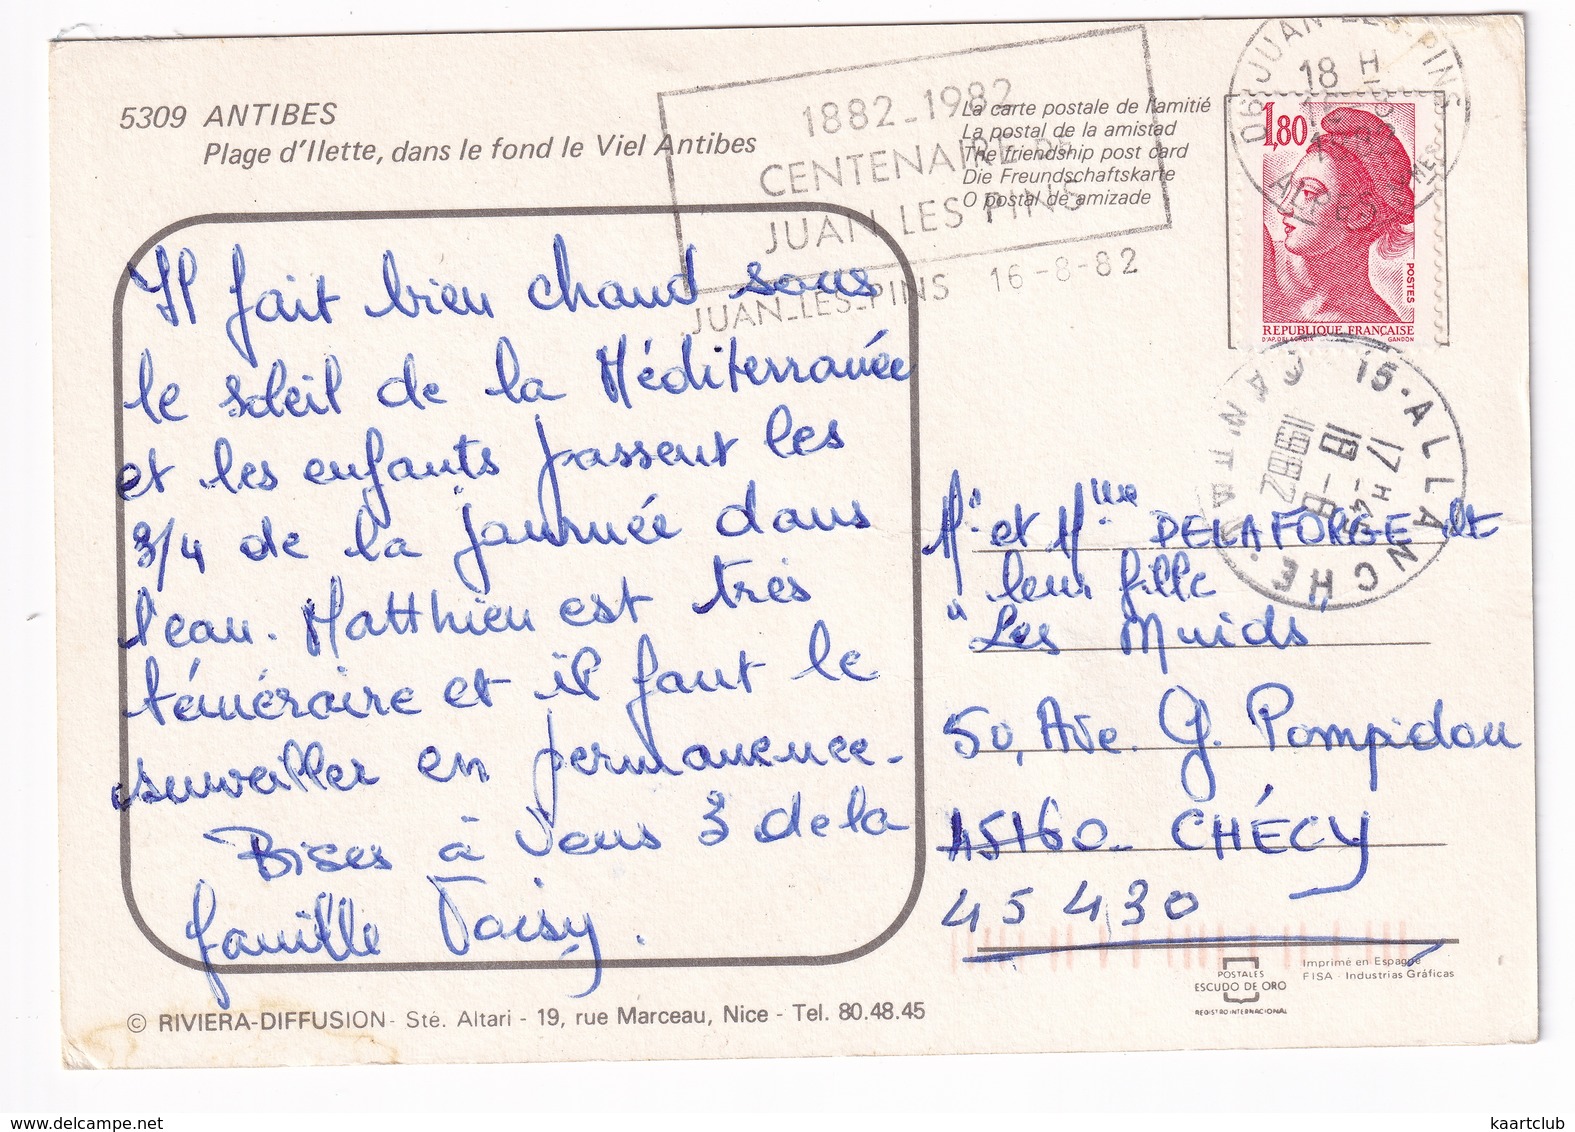 5309 ANTIBES
Plage d'Ilette, dans le fond le Viel Antibes
1882_1982
CENTENAIRE DE
JUAN LES PINS
JUAN-LES-PINS 16-8-82
La carte postale de l'amitié
La postal de la amistad
The friendship post card
Die Freundschaftskarte
O postal de amizade
06 JUAN-LES-PINS
18 H
1,80
POSTES
REPUBLIQUE FRANÇAISE
D'AP. DELACROIX GANDON
15-ALLANCHE
17 H 45
18-8
1982
CANTAL
Il fait bien chaud sous
le soleil de la Méditerranée
et les enfants passent les
3/4 de la journée dans
l'eau. Matthieu est très
téméraire et il faut le
surveiller en permanence.
Bises à vous 3 de la
famille Voisy.
Mr et Mme DELAFORGE et
leur fille
"Les Muids"
50, Ave. G. Pompidou
45160_ CHÉCY
45430
POSTALES
ESCUDO DE ORO
REGISTRO INTERNACIONAL
Imprimé en Espagne
FISA - Industrias Gráficas
© RIVIERA-DIFFUSION - Sté. Altari - 19, rue Marceau, Nice - Tel. 80.48.45
www.delcampe.net
kaartclub